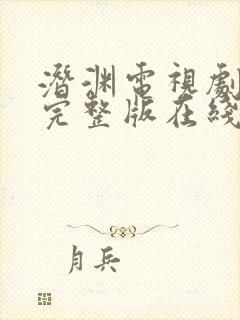 潛渊電視劇
完整版在綫
月兵